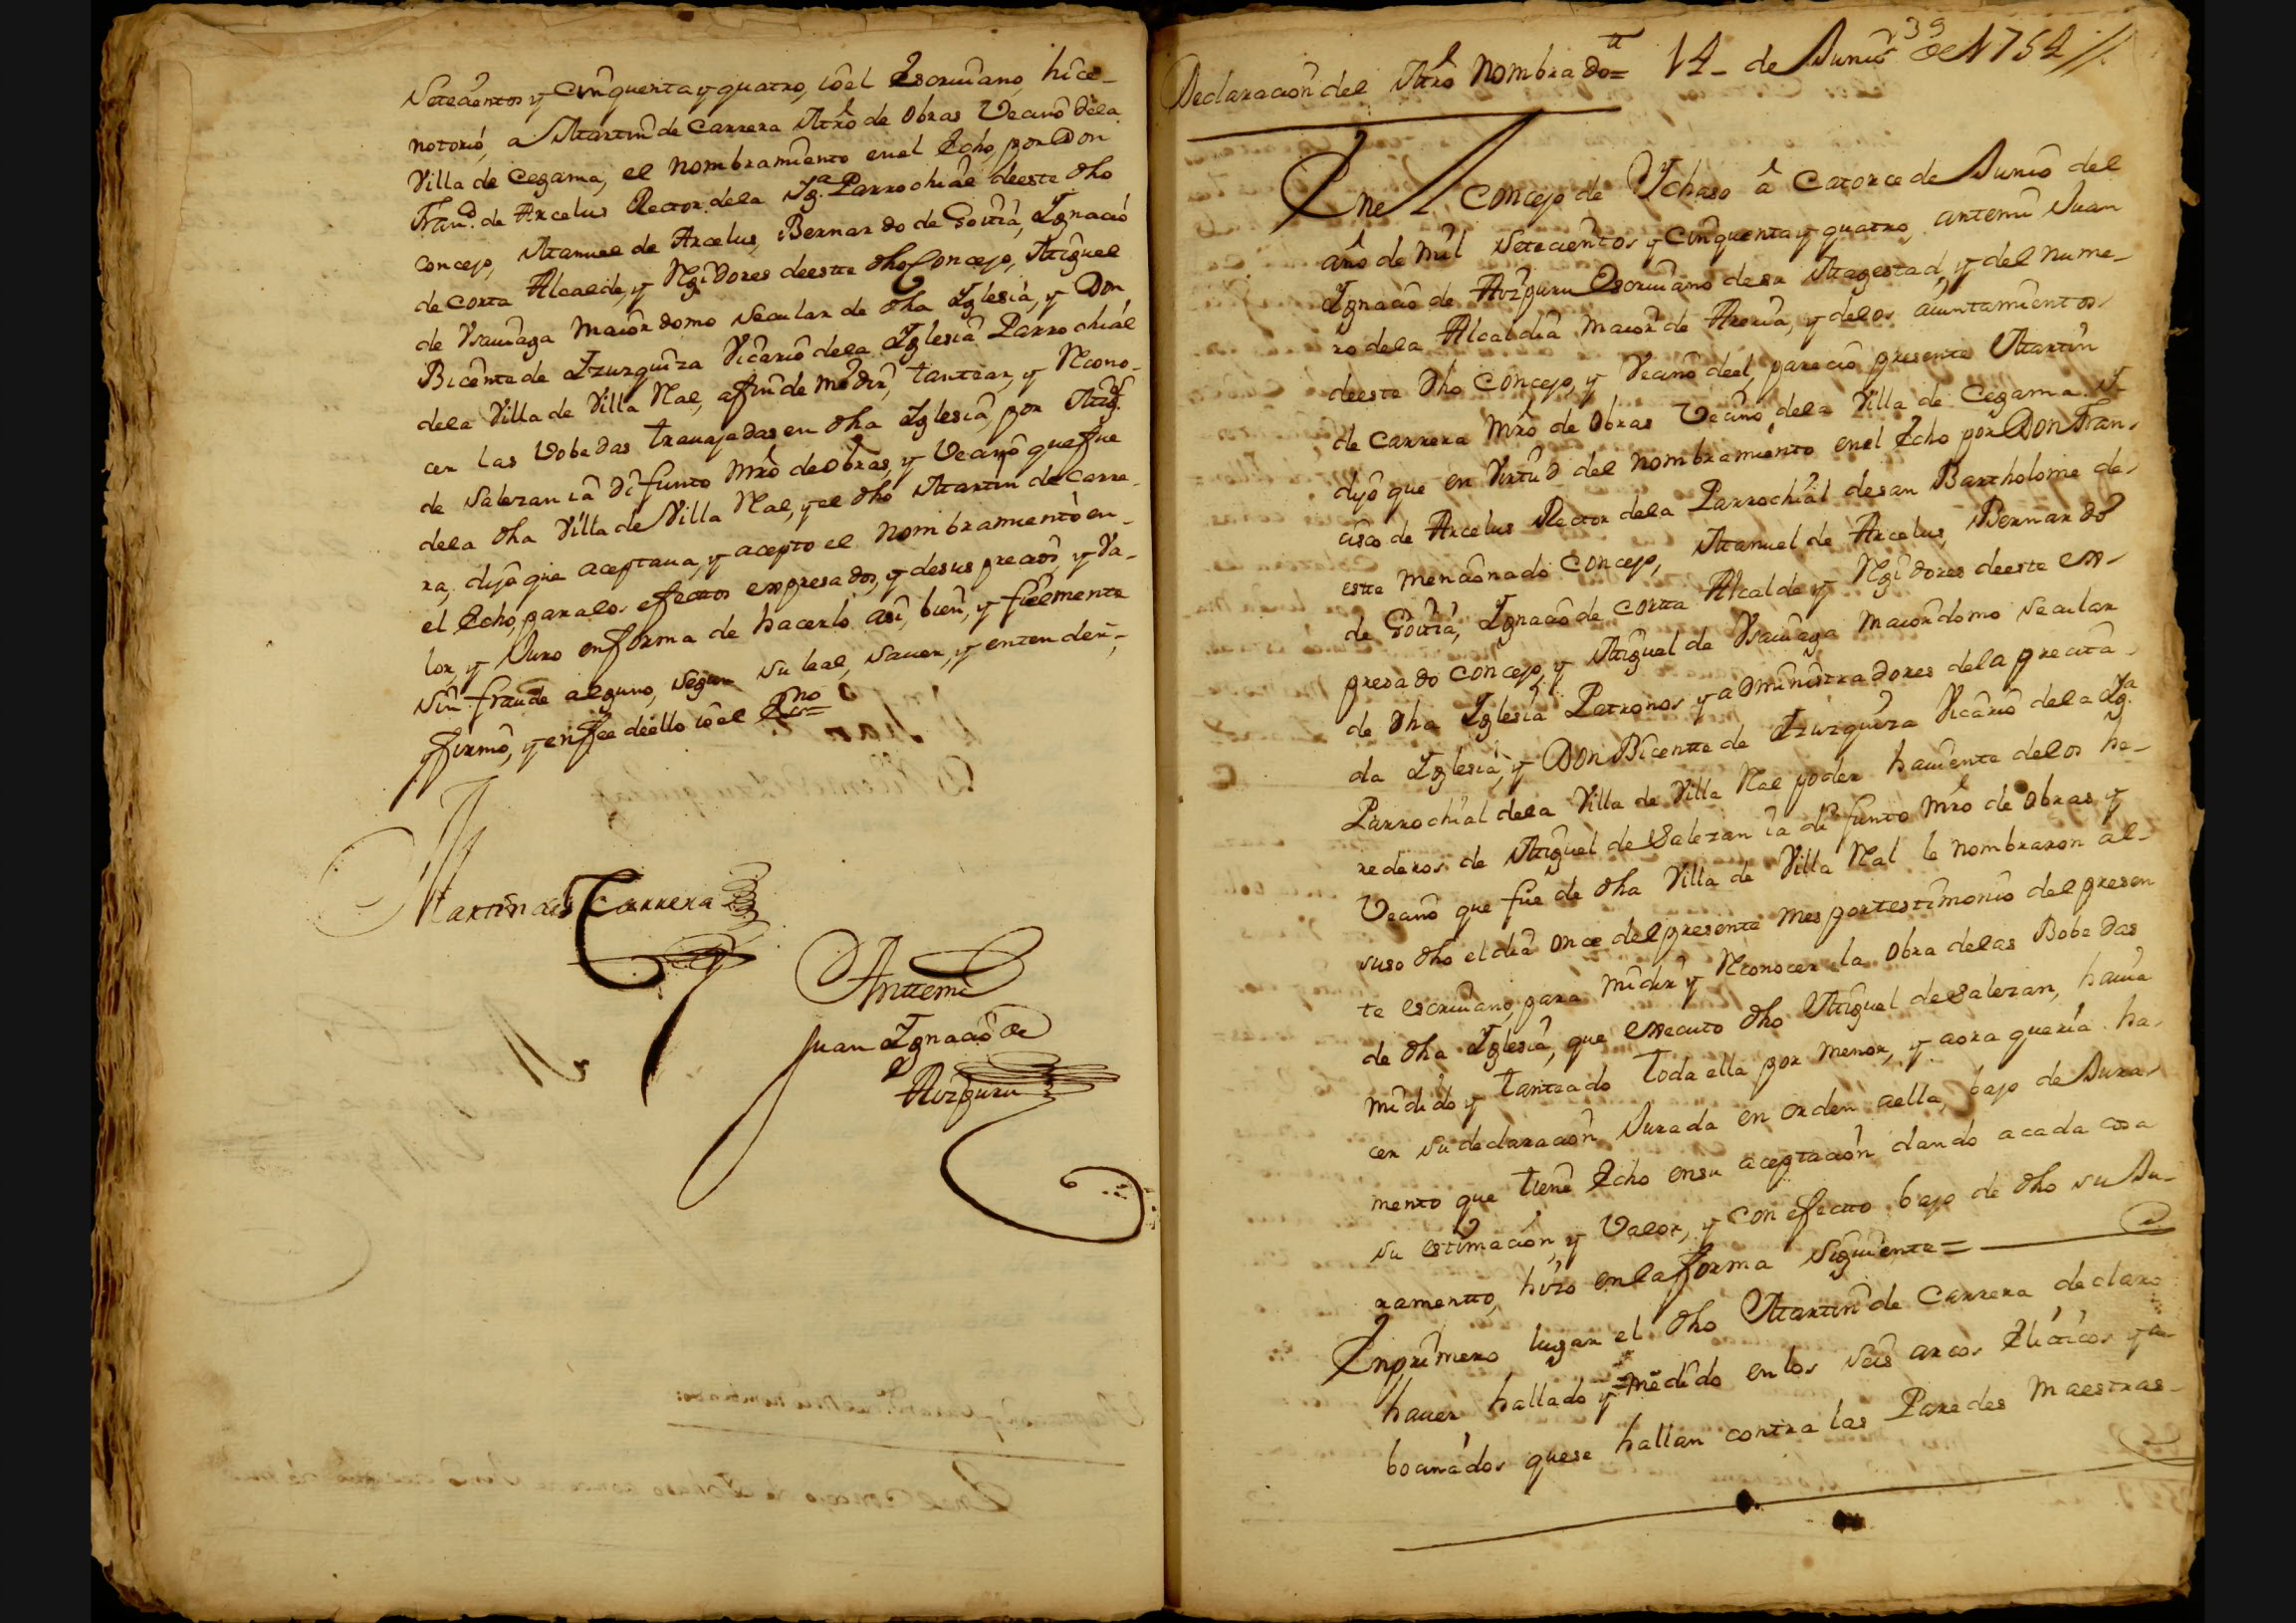 Setecientos y Cinquenta y quatro, io el Escriuano, hice
notorio, a Martin de Carrera Mrô de Obras Vecino dela
Villa de Cegama, el nombramiento en el Echo, por Don
Franco. de Arcelus Rector dela Yga. Parrochial deeste dho
Concejo, Manuel de Arcelus, Bernardo de Goitia, Ignacio
de Corta Alcalde, y Rgidores deeste dho Concejo, Miguel
de Vsauiaga Maiordomo Secular de dha Iglesia, y Don
Bicente de Izurquiza Vicario dela Iglesia Parrochial
dela Villa de Villa Ral, afin de medir, tantear, y Recono-
cer las Vobedas trauajadas en dha Iglesia, por Migl.
de Salezan ia difunto Mrô de obras, y Vecino que fue
dela dha Villa de Villa Ral, y el dho Martin de Carre-
ra, dijo que aceptaua, y acepto el nombramiento en
el Echo, para los efectos expresados, y desus precios, y Va-
lor, y Juro en forma de hacerlo asi, bien, y fielmente
sin fraude alguno, segun su leal, sauer, y entender,
y firmò, y en fee deello io el Esno=
Martin de Carrera
Anttemi
Juan Ignacio de
Aizpuru
39
Declaracion del Mrô Nombrado= 14- de Junio de 1754//
Enel Concejo de Ychaso â Catorce de Junio del
año de mil Setecientos y Cinquenta y quatro, antemi Juan
Ignacio de Aizpuru Escriuano desu Magestad, y del nume-
ro dela Alcaldia maior de Areria, y delos aiuntamientos
deeste dho Concejo, y Vecino deel, parecio presente Martin
de Carrera Mrô de Obras Vecino dela Villa de Cegama y
dijo que en Virtud del nombramiento en el Echo por Don Fran-
cisco de Arcelus Rector dela Parrochial desan Bartholome de
este mencionado Concejo, Manuel de Arcelus, Bernardo
de Goitia, Ignacio de Cortta Alcalde y Rgidores deeste ex-
presado Concejo, y Miguel de Vsauiaga maiordomo Secular
de dha Iglesia Patronos y administradores dela precita-
da Iglesia, y Don Bicentte de Izurquiza Vicario dela Yga.
Parrochial dela Villa de Villa Ral poder hauiente delos he-
rederos de Miguel de Salezan ia difunto Mrô de Obras y
Vecino que fue de dha Villa de Villa Ral le nombraron al
suso dho el dia once del presente mes por testimonio del presen
te escriuano, para midir y Reconocer la Obra delas Bobedas
de dha Iglesia, que executo dho Miguel de Salezan, hauia
midido y tanteado toda ella por menor, y aora queria ha-
cer su declaracion Jurada en orden aella, bajo de Jura-
mento que tiene Echo ensu aceptacion dando acada cosa
su estimacion, y Valor, y con efecto bajo de dho su Ju-
ramentto, hizo en la forma Siguiente=
En primero lugar el dho Martin de Carrera declaro
hauer hallado y medido en los Seis arcos Elicticos ya-
bocinados quese hallan contra las Paredes Maestras